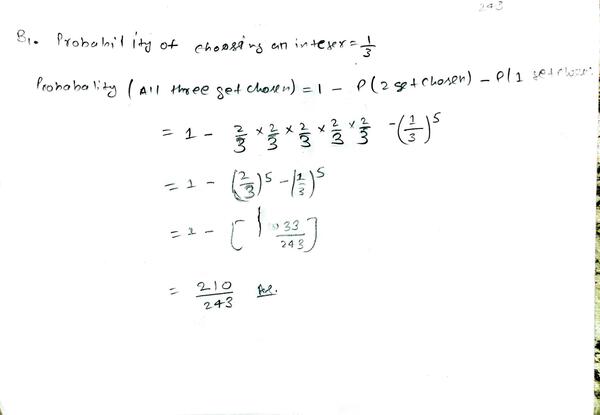 243
B1. Probability of choosing an integer = 1/3
Probability (All three get chosen) = 1 - P(2 get chosen) - P(1 get chosen
= 1 - 2/3 × 2/3 × 2/3 × 2/3 × 2/3 - (1/3)^5
= 1 - (2/3)^5 - (1/3)^5
= 1 - [ 33/243 ]
= 210/243 Ans.